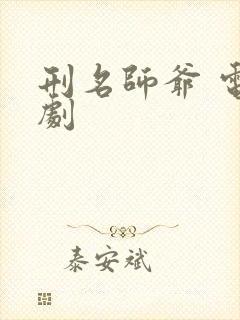 刑名師爺 電
劇
泰安斌